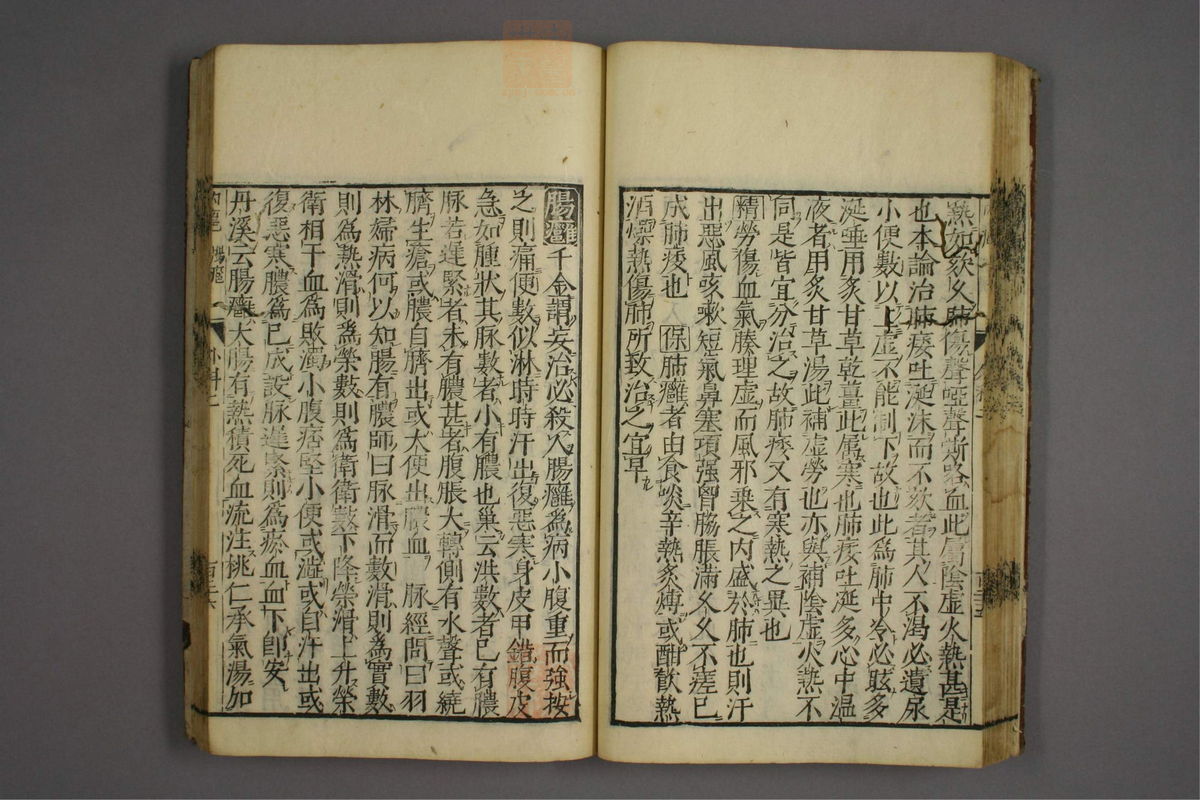 熱如欬久肺傷聲啞聲嘶咯血此屬陰虛火熱甚是
也本論治肺痿吐涎沫而不欬者其人不渴必遺尿
小便數以上虛不能制下故也此為肺中冷必眩多
涎唾用炙甘草乾薑此属寒也肺痿吐涎多心中温
液者用炙甘草湯此補虛勞也亦與補陰虛火熱不
同是皆宜分治之故肺痿又有寒熱之異也
精勞傷血氣腠理虛而風邪乗之内盛於肺也則汗
出惡風咳嗽短氣鼻塞項强胷脇脹滿久久不瘥已
成肺痿也 保肺癰者由食啖辛熱炙煿或酣飲熱
酒燥熱傷肺所致治之宜早
腸癰千金謂妄治必殺人腸癰爲病小腹重而強按
之則痛便數似淋時時汗出復惡寒身皮甲錯腹皮
急如腫狀其脉數者小有膿也巢云洪數者已有膿
脉若遲緊者未有膿甚者腹脹大轉側有水聲或繞
臍生瘡或膿自臍出或大便出膿血 脉經問曰羽
林婦病何以知腸有膿師曰脉滑而數滑則為實數
則為熱滑則爲榮數則爲衛衛數下降榮滑上升榮
衛相干血爲敗濁小腹痞堅小便或澁或自汗出或
復惡寒膿爲已成設脉遲緊則爲瘀血血下卽安
丹溪云腸癰大腸有熱積死血流注桃仁承氣湯加